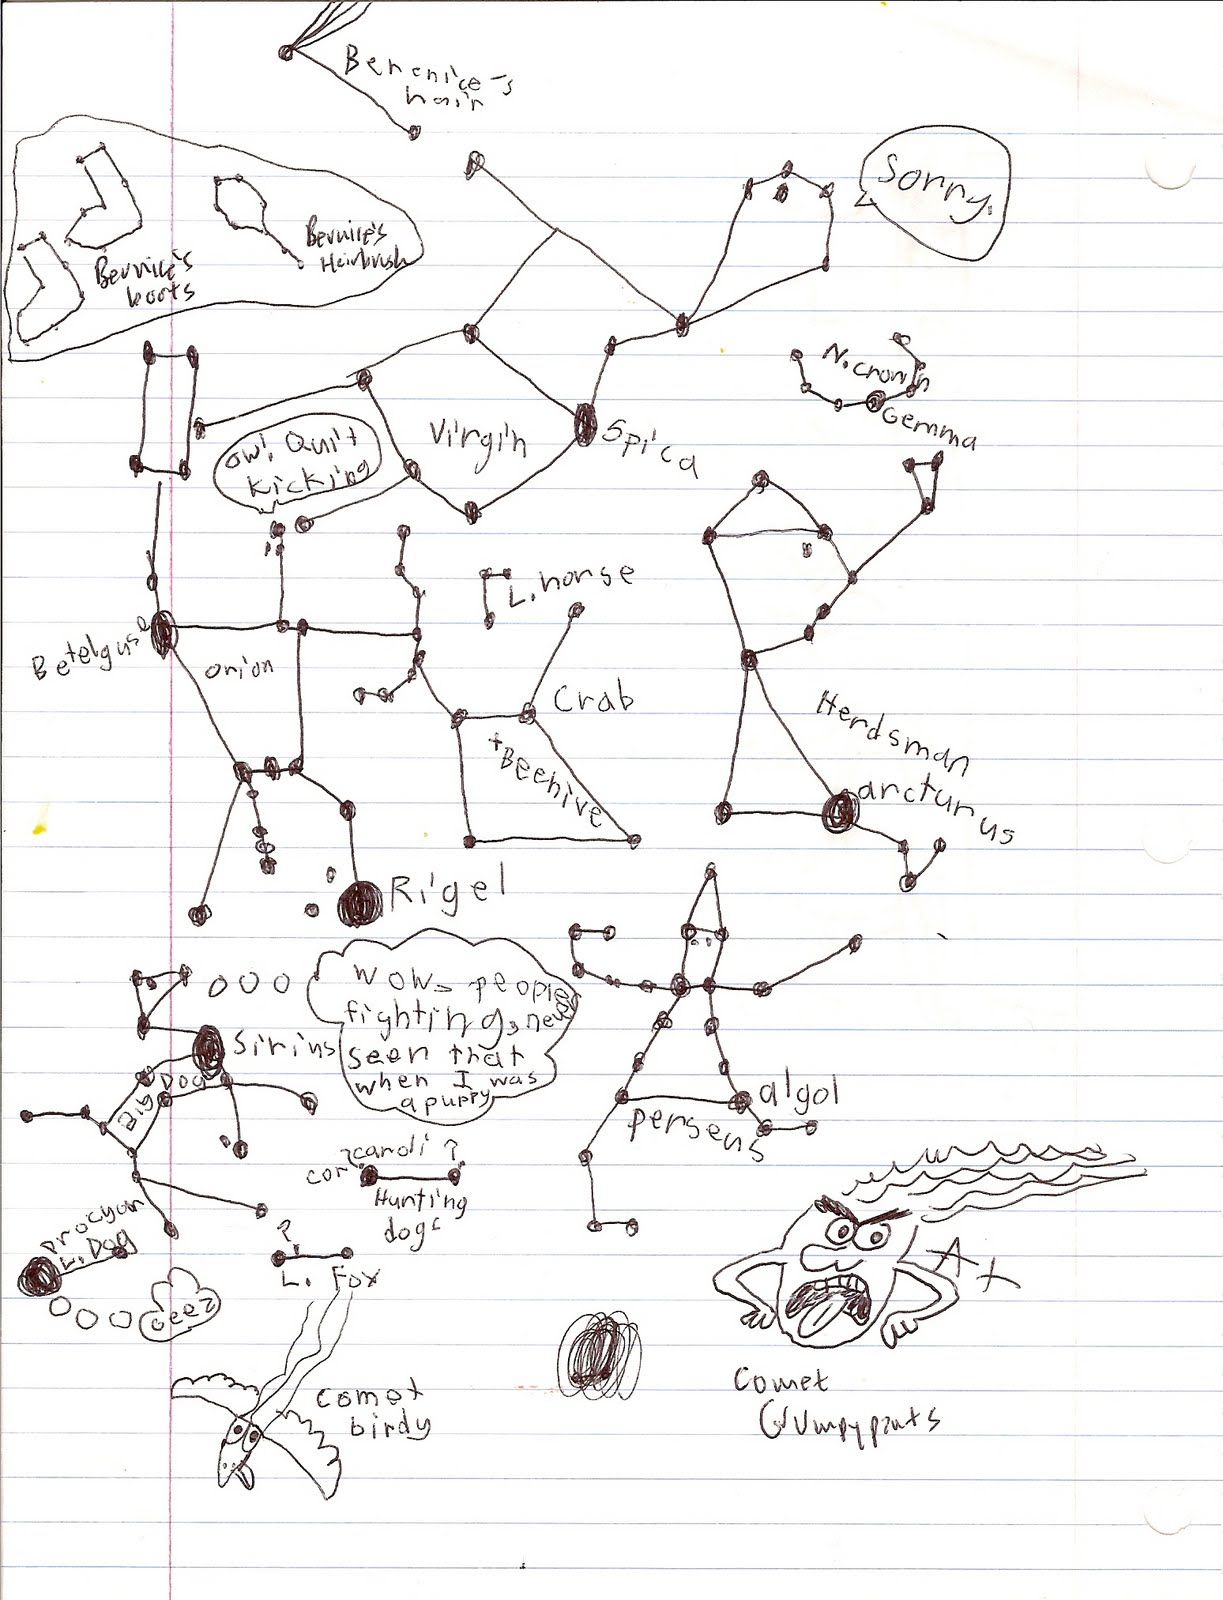 Berenice's
hair
Sorry.
Bernice's
boots
Bernice's
Hairbrush
N. crown
Gemma
Virgin
Spica
ow! Quit
kicking
L. horse
Betelguse
orion
Crab
+ Beehive
Herdsman
arcturus
Rigel
wow, people
fighting, never
seen that
when I was
a puppy
Sirius
Big Dog
algol
perseus
cor caroli ?
?
Hunting
dogs
procyon
L. Dog
Geez
?
L. Fox
comet
birdy
comet
Grumpypants